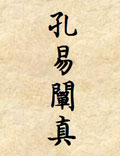 孔易闡真